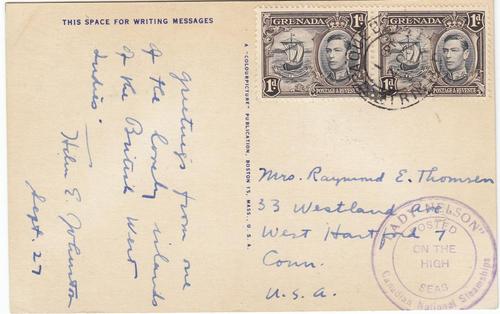 THIS SPACE FOR WRITING MESSAGES
greetings from one
of the lovely islands
of the British West
Indies.
Helen E. Johnston
Sept. 27
A "COLOURPICTURE" PUBLICATION, BOSTON 15, MASS., U.S.A.
GRENADA 1d
1d
POSTAGE & REVENUE
GRENADA 1d
1d
POSTAGE & REVENUE
Mrs. Raymond E. Thomsen
33 Westland Ave
West Hartford 7
Conn.
U.S.A.
NELSON"
POSTED
ON THE
HIGH
SEAS
Canadian National Steamships